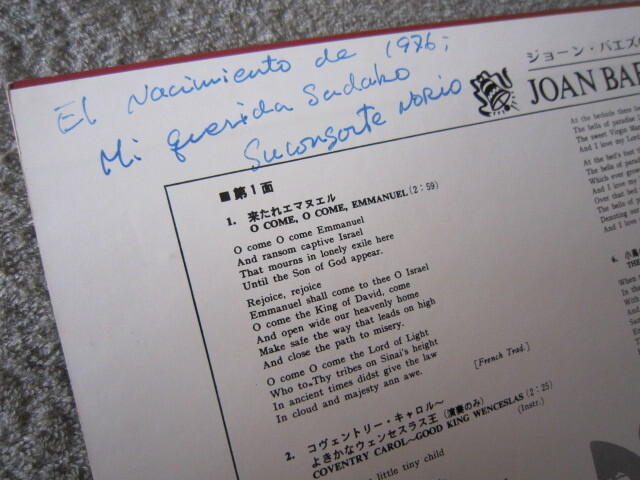 El Nacimiento de 1976;
Mi querida Sadako
Su consorte NORIO
ジョーン・バエズの
JOAN BAE
■第1面
1. 来たれエマヌエル
O COME, O COME, EMMANUEL(2:59)
O come O come Emmanuel
And ransom captive Israel
That mourns in lonely exile here
Until the Son of God appear.
Rejoice, rejoice
Emmanuel shall come to thee O Israel
O come the King of David, come
And open wide our heavenly home
Make safe the way that leads on high
And close the path to misery.
O come O come the Lord of Light
Who to Thy tribes on Sinai's height
In ancient times didst give the law
In cloud and majesty ann awe.
[French Trad.]
2. コヴェントリー・キャロル〜
よきかなウェンセスラス王(演奏のみ)
COVENTRY CAROL〜GOOD KING WENCESLAS(2:25)
(Instr.)
little tiny child
At the bedside there
The bells of paradise
The sweet Virgin
And I love my
At the bed's foot
The bells of paradise
Which ever grows
And I love my
Over that bed
The bells of
Denoting
And I love
6. 小鳥
THE
When
In the